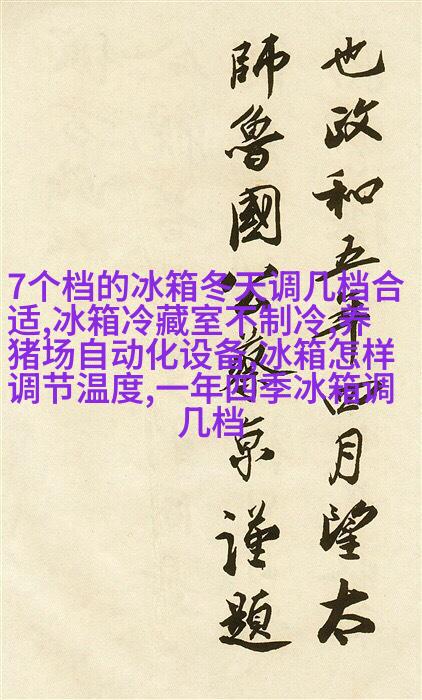 也政和五年四月望太
師魯國公蔡京謹題
7个档的冰箱冬天调几档合
适,冰箱冷藏室不制冷,养
猪场自动化设备,冰箱怎样
调节温度,一年四季冰箱调
几档